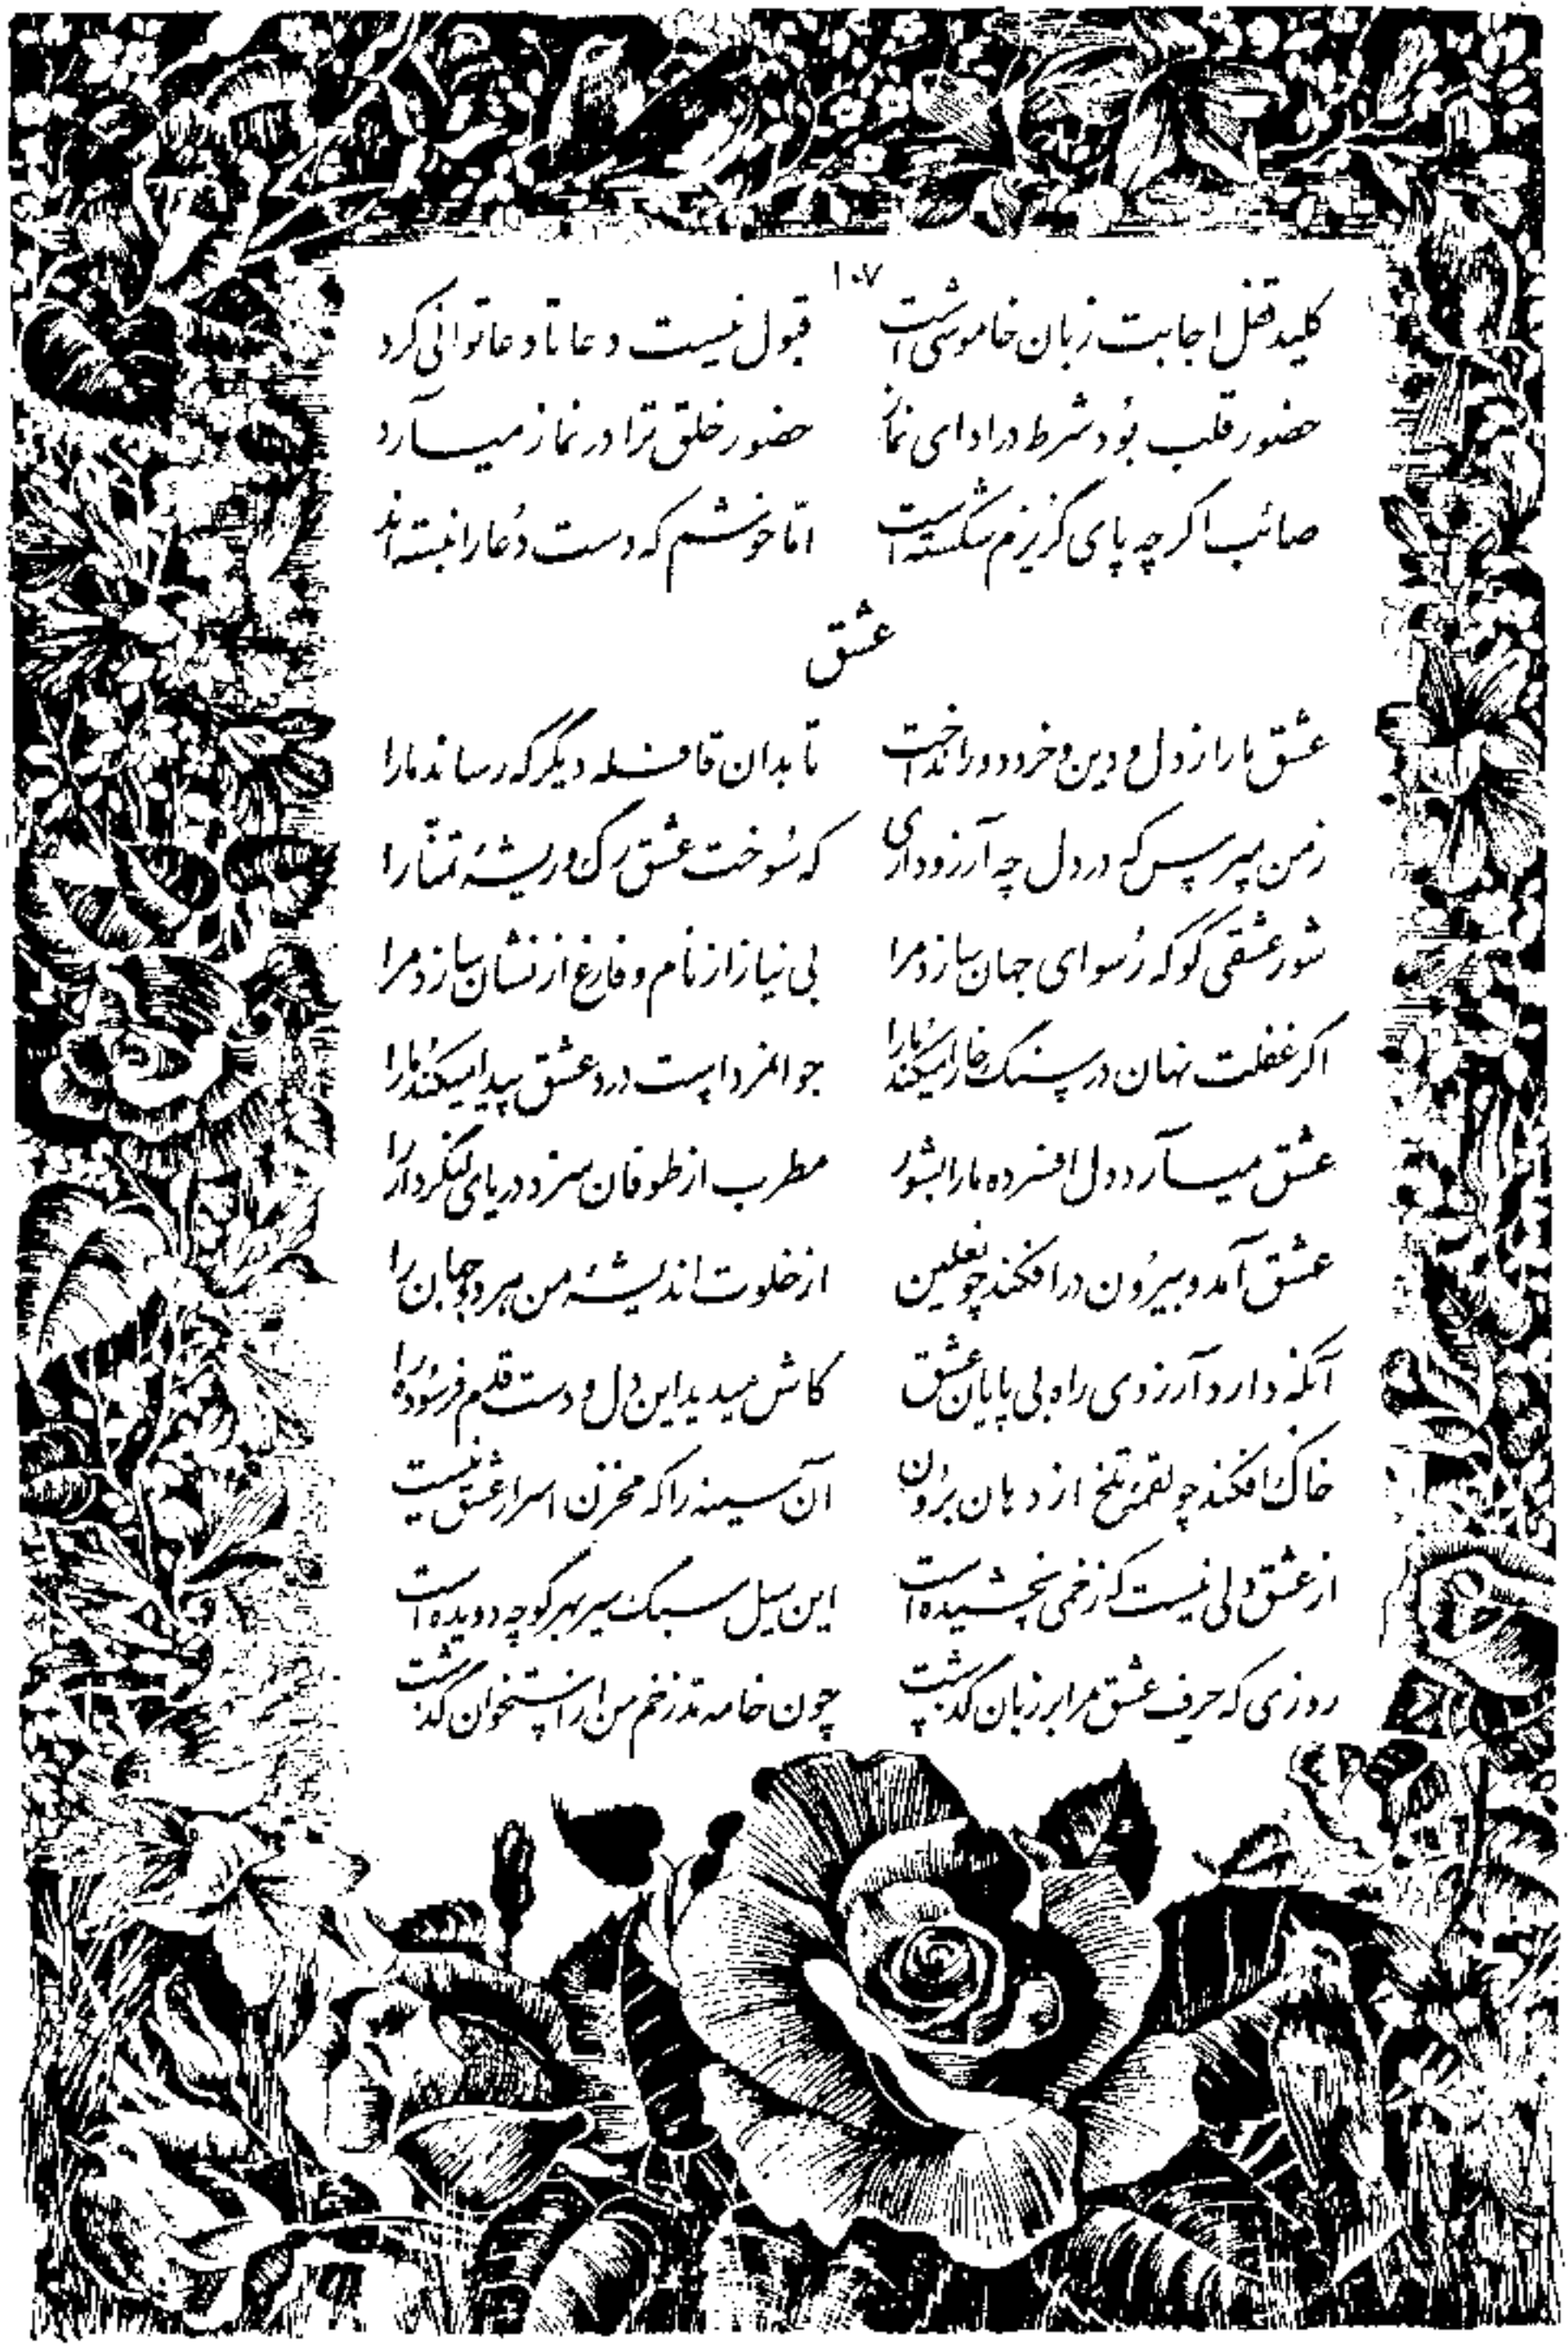 ۱۰۷
کلید قفل اجابت زبان خاموشی است    قبول نیست دعا تا دعا توانی کرد
حضور قلب بُود شرط در ادای نماز    حضور خلق ترا در نماز میآرد
صائب اگر چه پای گریزم شکسته است    امّا خوشم که دست دُعا را نبسته‌اند
عشق
عشق ما را ز دل و دین و خرد دور انداخت    تا بدان قافله دیگر که رساند ما را
زمن مپرس که در دل چه آرزو داری    که سُوخت عشق رگ و ریشهٔ تمنّا را
شور عشقی کو که رُسوای جهان سازد مرا    بی نیاز از نام و فارغ از نشان سازد مرا
اگر غفلت نهان در سنگ خارا میکند ما را    جوانمرد است درد عشق پیدا میکند ما را
عشق میآرد دل افسرده ما را بشور    مطرب از طوفان سزد دریای لنگردار را
عشق آمد و بیرُون در افکند چو نعلین    از خلوت اندیشهٔ من هر دو جهان را
آنکه دارد آرزوی راه بی پایان عشق    کاش میدید این دل و دست قلم فرسُوده را
خاک افکند چو لقمهٔ تلخ از دهان برُون    آن سینه را که مخزن اسرار عشق نیست
از عشق دلی نیست که زخمی نچشیده است    این سیل سبک سیر بهر کوچه دویده است
روزی که حرف عشق مرا بر زبان گذشت    چون خامه مد زخم من از استخوان گذشت